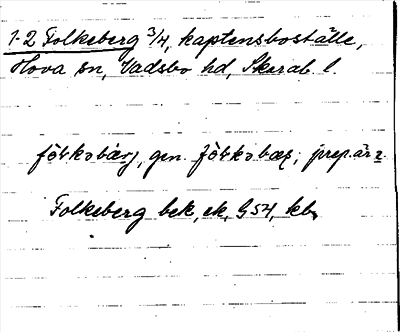 1-2 Folkeberg 3/4, kaptensboställe,
Hova sn, Vadsbo hd, Skarab. l.
fölkobærj, gen. fölkobæs; prep. är 2.
Folkeberg bek, ek, G54, kb.